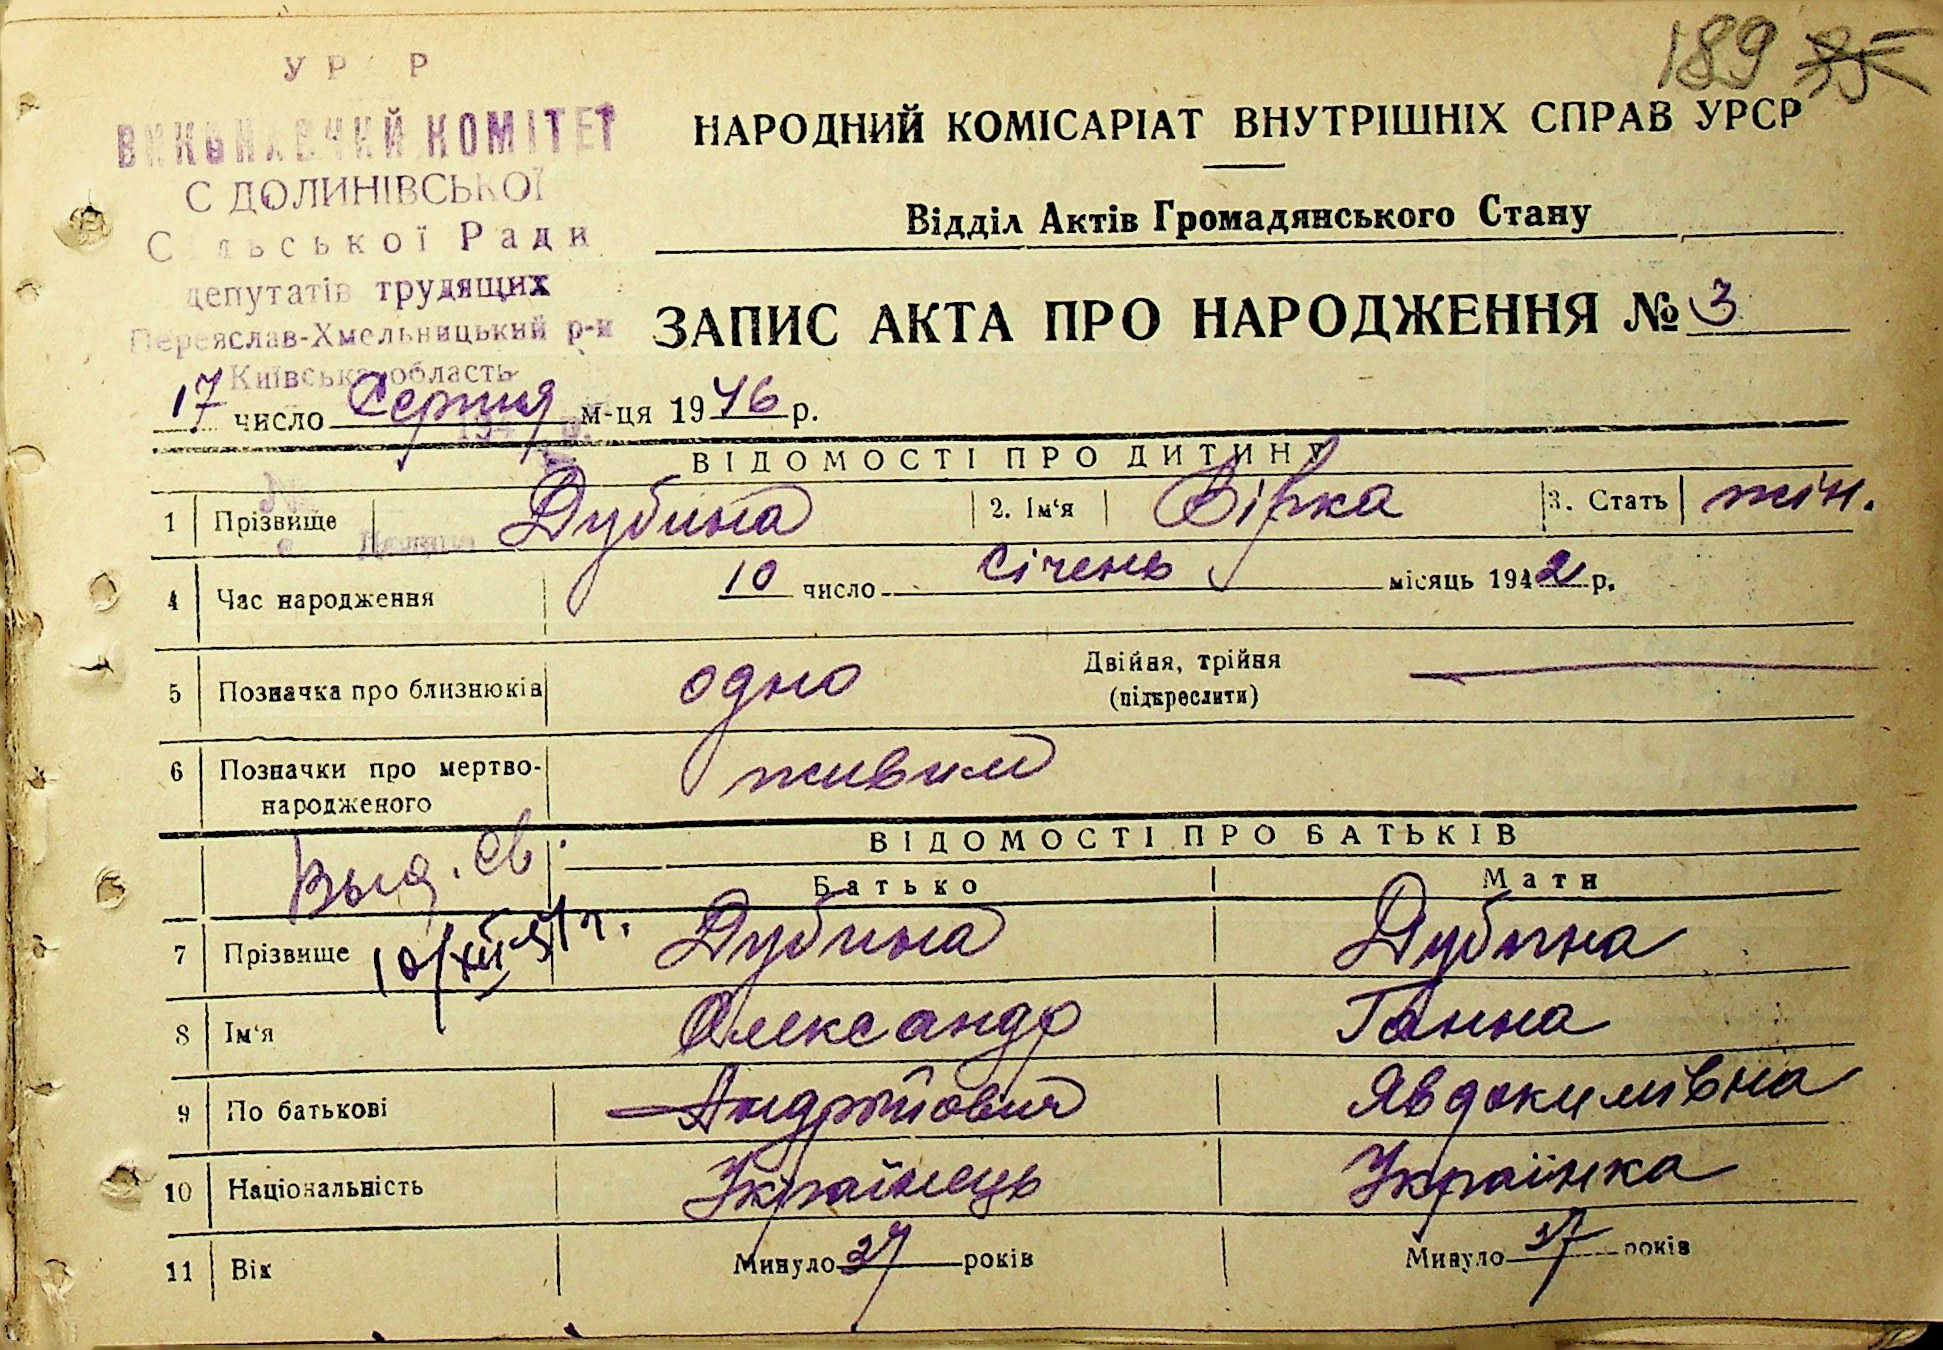 189 35
УР Р
ВИКОНАВЧИЙ КОМІТЕТ
С ДОЛИНІВСЬКОЇ
Сільської Ради
депутатів трудящих
Переяслав-Хмельницький р-н
Київська область
НАРОДНИЙ КОМІСАРІАТ ВНУТРІШНІХ СПРАВ УРСР
Відділ Актів Громадянського Стану
ЗАПИС АКТА ПРО НАРОДЖЕННЯ № 3
17 число Серпня м-ця 1946 р.
ВІДОМОСТІ ПРО ДИТИНУ
1 Прізвище Дубина 2. Ім'я Вірка 3. Стать жін.
4 Час народження 10 число січень місяць 1942 р.
5 Позначка про близнюків одно Двійня, трійня
(підкреслити)
6 Позначки про мертво-
народженого живим
Выд. св.
10/XII 51 г.
ВІДОМОСТІ ПРО БАТЬКІВ
Батько Мати
7 Прізвище Дубина Дубина
8 Ім'я Олександр Ганна
9 По батькові Андрійович Явдокимівна
10 Національність Українець Українка
11 Вік Минуло 37 років Минуло 37 років